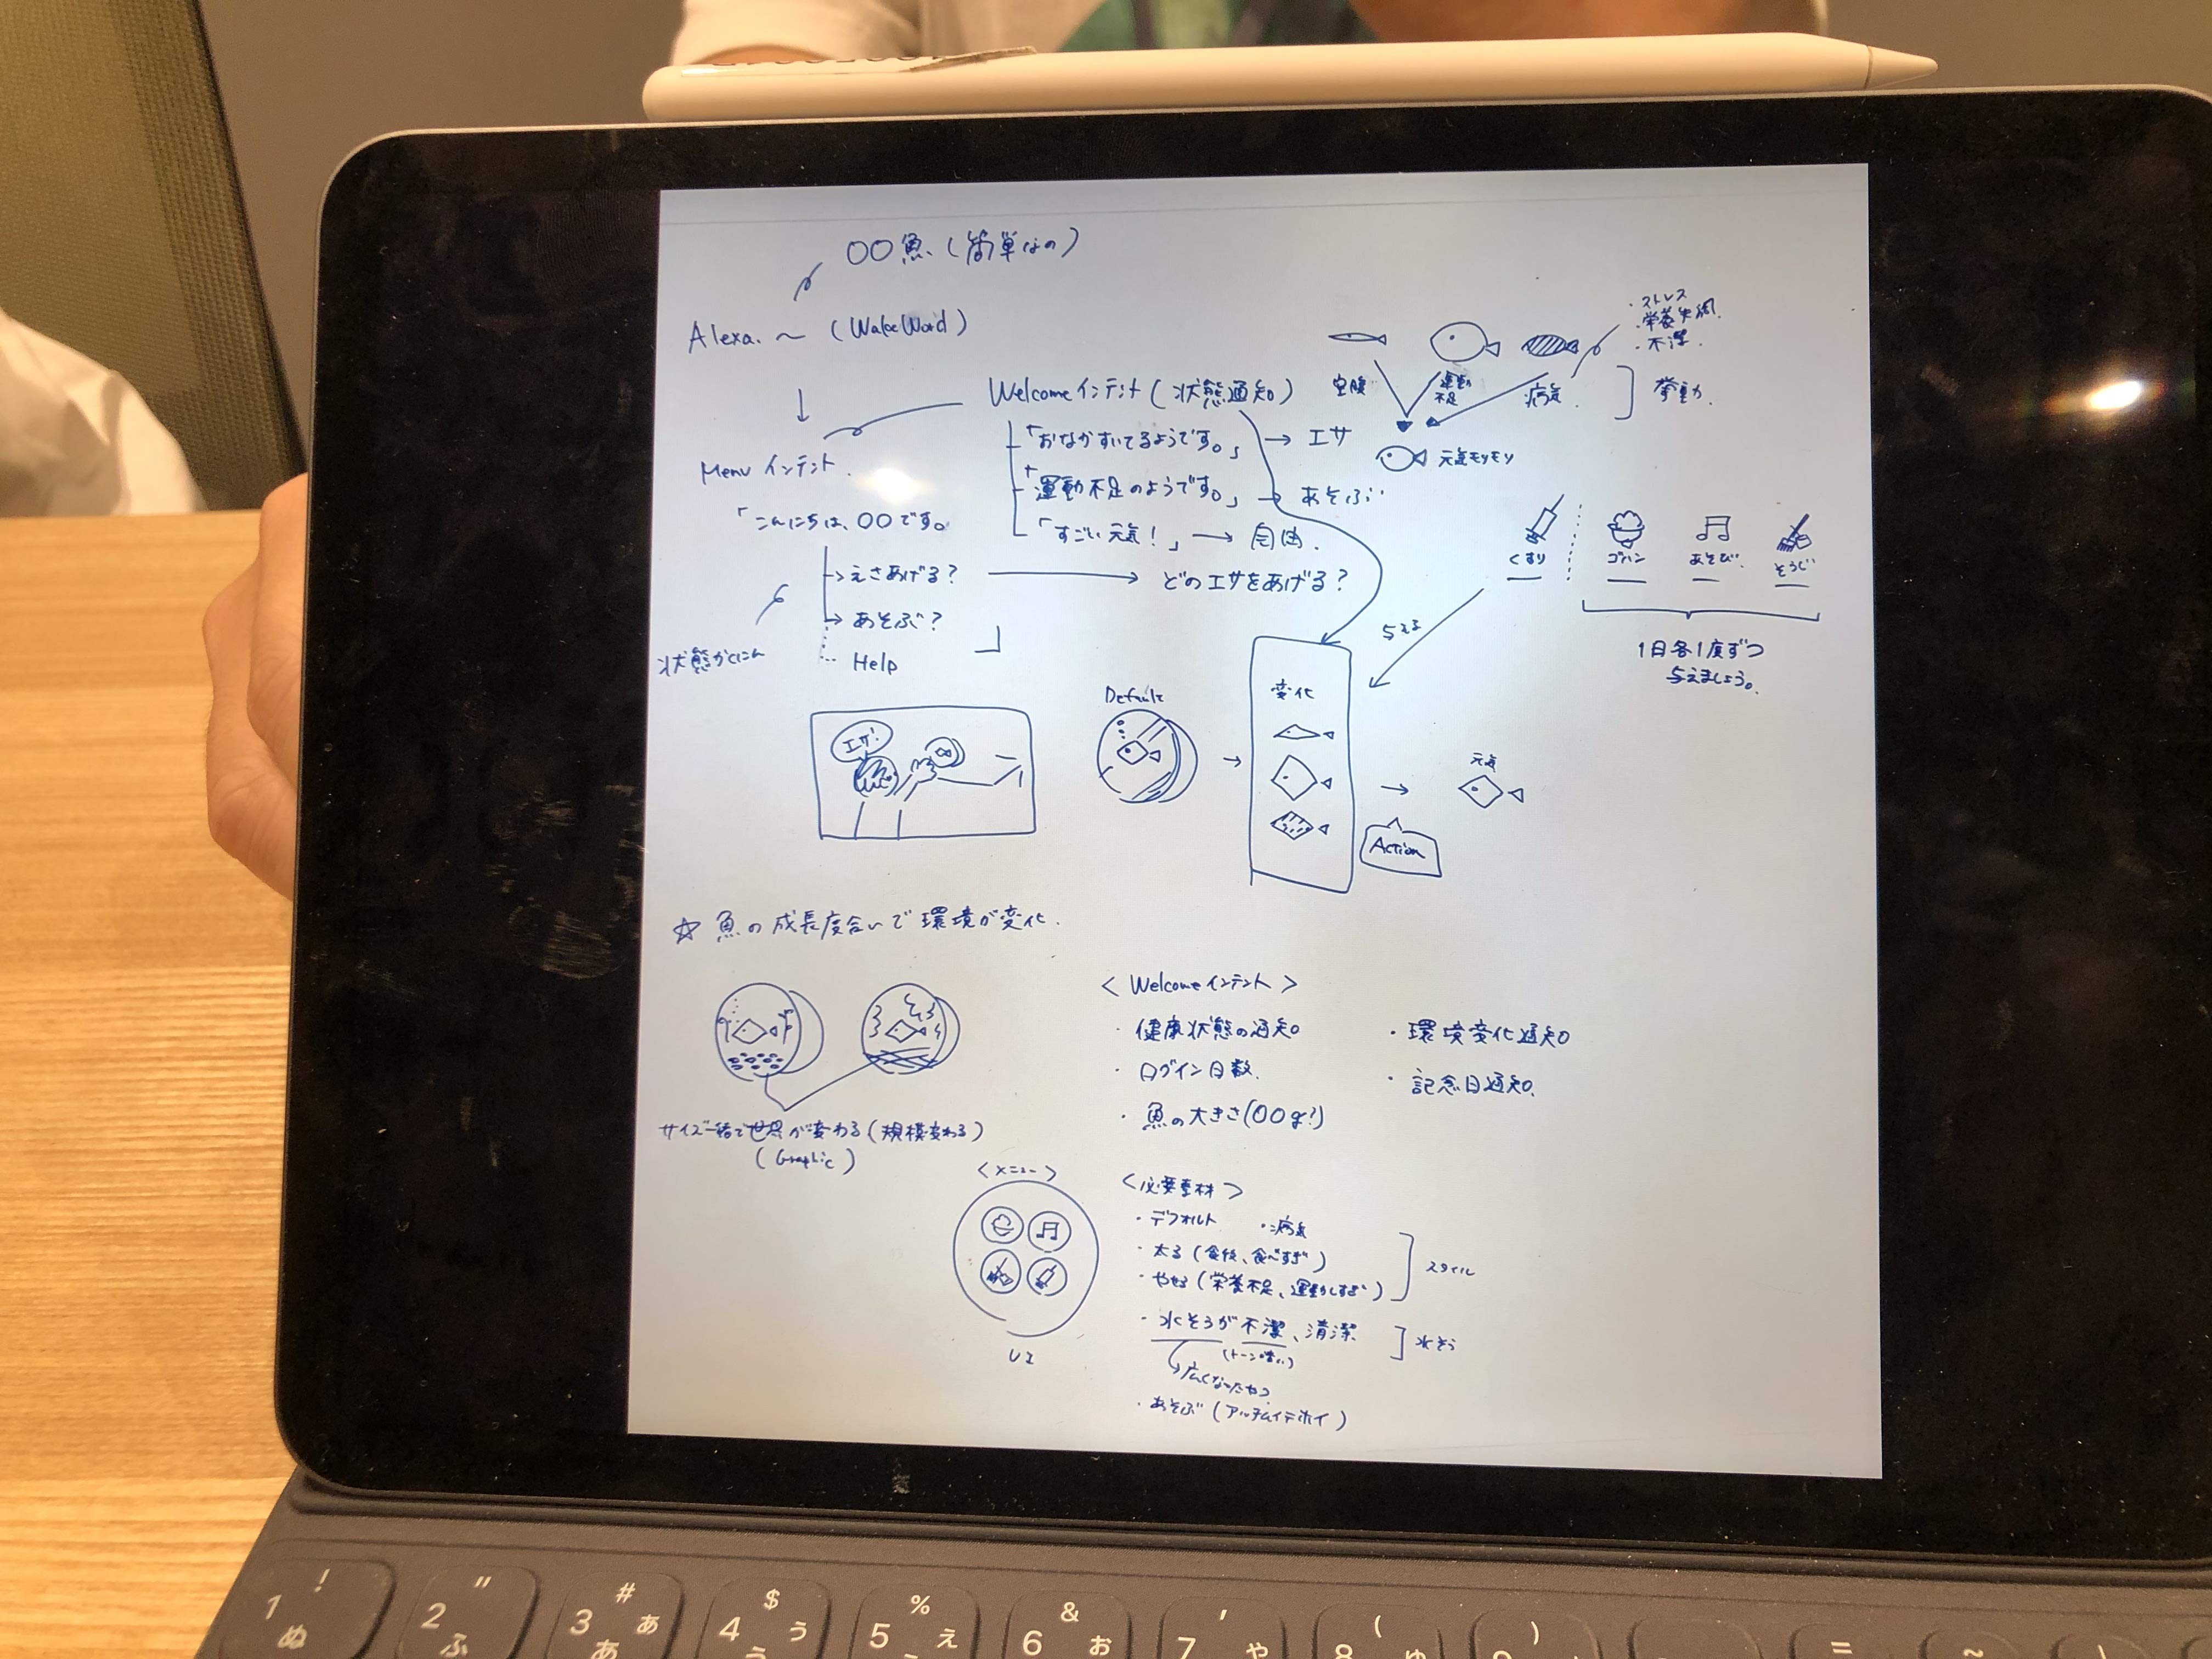 〇〇魚 (簡単なの)
Alexa. 〜 (WakeWord)
Welcome インテント (状態通知)
「おなかすいてるようです。」 → エサ
「運動不足のようです。」 → あそぶ
「すごい元気!」 → 自由.
Menu インテント.
「こんにちは、〇〇です。
→ えさあげる? → どのエサをあげる?
→ あそぶ?
Help
状態かくにん
・ストレス
・栄養失調.
・不潔.
空腹
運動不足
病気.
挙動.
元気モリモリ
くすり
ゴハン
あそび.
そうじ
1日各1度ずつ
与えましょう。
与える
エサ!
Default
→
変化
→
Action
元気
☆ 魚の成長度合いで環境が変化.
サイズ一緒で世界が変わる (規模変わる)
(Graphic)
< Welcome インテント >
・健康状態の通知
・ログイン日数.
・魚の大きさ(〇〇g!)
・環境変化通知
・記念日通知.
<メニュー>
UI
<必要素材>
・デフォルト ・病気
・太る (食後、食べすぎ)
・やせ (栄養不足、運動しすぎ)
スタイル
・水そうが不潔、清潔
水そう
(トーン暗い)
広くなったやつ
・あそぶ (アッチムイテホイ)
1 ! ぬ
2 " ふ
3 # あ ぁ
4 $ う ぅ
5 % え
6 & お
7 ' や
8 ( ゆ
)
=
~